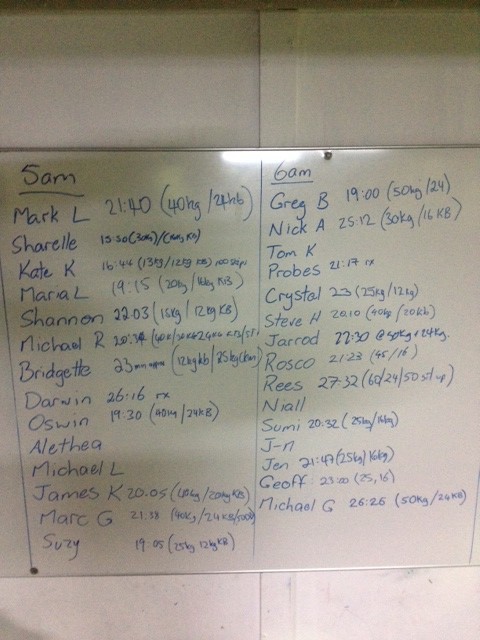 5am
Mark L 21:40 (40kg/24kb)
Sharelle 15:50 (30kg)/(
Kate K 16:44 (13kg/12kg KB)
Maria L 19:15 (20kg/16kg KB)
Shannon 22.03 (15kg/12kg KB)
Michael R
Bridgette 23min (12kg kb/25kg
Darwin 26:16 rx
Oswin 19:30 (40kg/24KB)
Alethea
Michael L
James K 20.05 (40kg/20kg KB)
Marc G 21:38 (40kg/24KB/
Suzy 19:05 (25kg 12kg KB)
6am
Greg B 19:00 (50kg/24)
Nick A 25:12 (30kg/16KB)
Tom K
Probes 21:17 rx
Crystal 23 (25kg/12kg)
Steve H 20.10 (40kg/20kb)
Jarrod 22:30 @50kg+24kg.
Rosco 21:23 (45/16)
Rees 27:32 (60/24/50 situp)
Niall
Sumi 20:32 (25kg/16kg)
J-n
Jen 21:47 (25kg/16kg)
Geoff: 23:20 (25,16)
Michael G 26:26 (50kg/24KB)